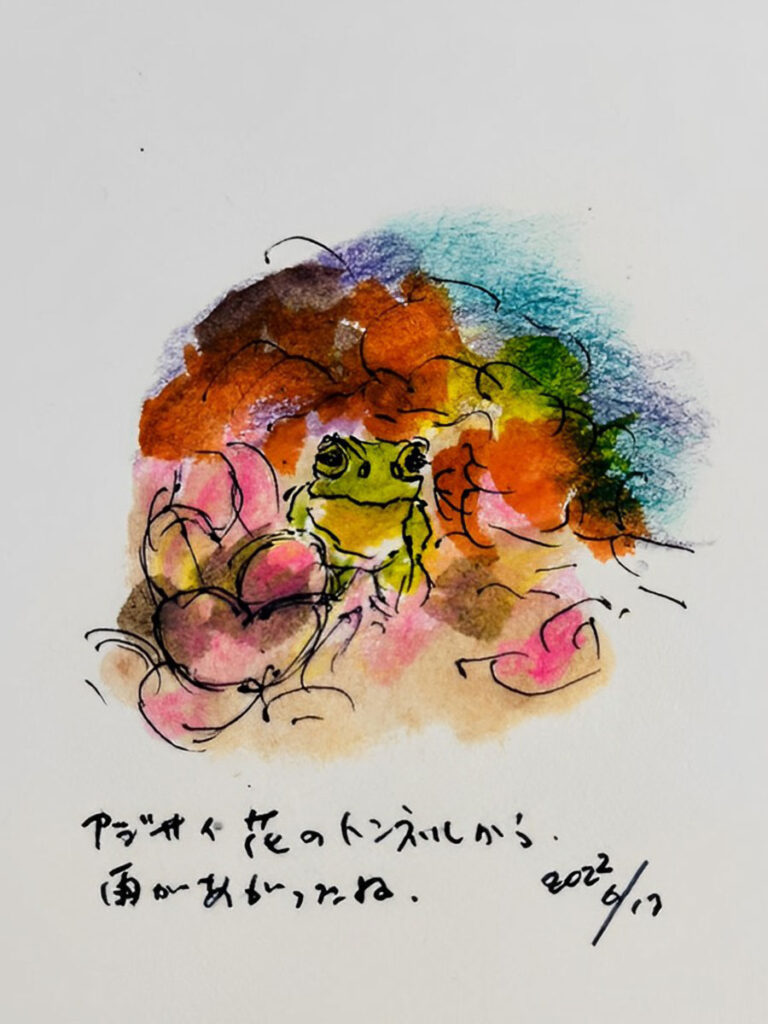 アジサイ花のトンネルから.
雨があがったね.
2022 6/17